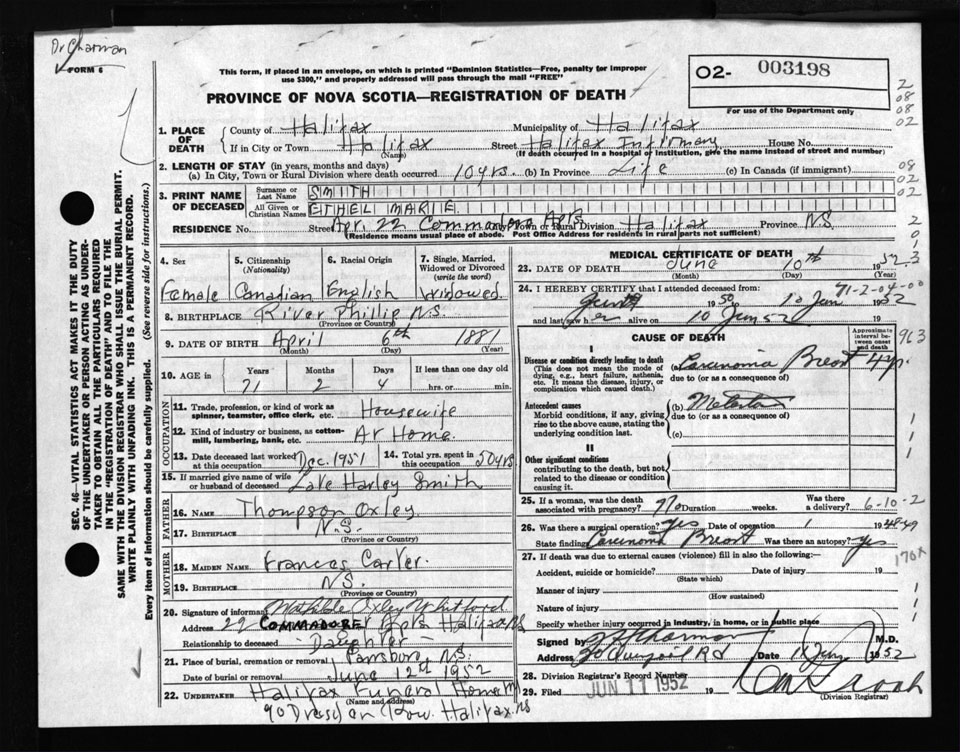 Dr Charman
FORM 6
This form, if placed in an envelope, on which is printed "Dominion Statistics—Free, penalty for improper
use $300," and properly addressed will pass through the mail "FREE"
02- 003198
For use of the Department only
PROVINCE OF NOVA SCOTIA—REGISTRATION OF DEATH
2
08
08
02
1. PLACE OF DEATH
County of Halifax Municipality of Halifax
If in City or Town Halifax Street Halifax Infirmary House No.
(Name) (If death occurred in a hospital or institution, give the name instead of street and number)
2. LENGTH OF STAY (in years, months and days)
(a) In City, Town or Rural Division where death occurred 10 yrs. (b) In Province Life (c) In Canada (if immigrant)
08
02
02
3. PRINT NAME OF DECEASED
Surname or Last Name SMITH
All Given or Christian Names ETHEL MARIE
RESIDENCE No. Street Apt. 22 Commodore Apts Town or Rural Division Halifax Province N.S.
(Residence means usual place of abode. Post Office Address for residents in rural parts not sufficient)
2
0
1
3
4. Sex
Female
5. Citizenship (Nationality)
Canadian
6. Racial Origin
English
7. Single, Married, Widowed or Divorced (write the word)
Widowed
8. BIRTHPLACE River Phillip N.S.
(Province or Country)
9. DATE OF BIRTH April 6th 1881
(Month) (Day) (Year)
10. AGE
Years Months Days If less than one day old
71 2 4 hrs. or min.
OCCUPATION
11. Trade, profession, or kind of work as spinner, teamster, office clerk, etc. Housewife
12. Kind of industry or business, as cotton-mill, lumbering, bank, etc. At Home.
13. Date deceased last worked at this occupation Dec. 1951
14. Total yrs. spent in this occupation 50 yrs
15. If married give name of wife or husband of deceased Late Harley Smith
FATHER
16. NAME Thompson Oxley
17. BIRTHPLACE N.S.
(Province or Country)
MOTHER
18. MAIDEN NAME Frances Carter.
19. BIRTHPLACE N.S.
(Province or Country)
20. Signature of informant Mathilde Oxley Whitford
Address 22 COMMADORE Apts Halifax NS
Relationship to deceased - Daughter -
21. Place of burial, cremation or removal Parrsboro N.S.
Date of burial or removal June 12th 1952
22. UNDERTAKER Halifax Funeral Home
(Name and address)
90 Dresden Row. Halifax. NS
MEDICAL CERTIFICATE OF DEATH
23. DATE OF DEATH June 10th 1952
(Month) (Day) (Year)
24. I HEREBY CERTIFY that I attended deceased from: 91-2-04-00
1950 10 Jun 1952
and last saw her alive on 10 Jun 52 19
CAUSE OF DEATH
Approximate interval between onset and death
963
I
Disease or condition directly leading to death
(This does not mean the mode of dying, e.g., heart failure, asthenia, etc. It means the disease, injury, or complication which caused death.)
(a) Carcinoma Breast 4 yr
due to (or as a consequence of)
Antecedent causes
Morbid conditions, if any, giving rise to the above cause, stating the underlying condition last.
(b)
due to (or as a consequence of)
(c)
II
Other significant conditions
contributing to the death, but not related to the disease or condition causing it.
1
1
1
25. If a woman, was the death associated with pregnancy? No Duration weeks. Was there a delivery? 6-10-2
26. Was there a surgical operation? Yes Date of operation 1 1948-49
State findings Carcinoma Breast Was there an autopsy? yes
170x
27. If death was due to external causes (violence) fill in also the following:—
Accident, suicide or homicide? Date of injury 19
(State which)
Manner of injury
(How sustained)
Nature of injury
Specify whether injury occurred in industry, in home, or in public place
1
1
1
Signed by Charman M.D.
Address Rd Date 1952
28. Division Registrar's Record Number
29. Filed JUN 11 1952 19
(Division Registrar)
SEC. 46—VITAL STATISTICS ACT MAKES IT THE DUTY
OF THE UNDERTAKER OR PERSON ACTING AS UNDER-
TAKER TO OBTAIN ALL THE PARTICULARS REQUIRED
IN THE "REGISTRATION OF DEATH" AND TO FILE THE
SAME WITH THE DIVISION REGISTRAR WHO SHALL ISSUE THE BURIAL PERMIT.
WRITE PLAINLY WITH UNFADING INK. THIS IS A PERMANENT RECORD.
Every item of information should be carefully supplied. (See reverse side for instructions.)